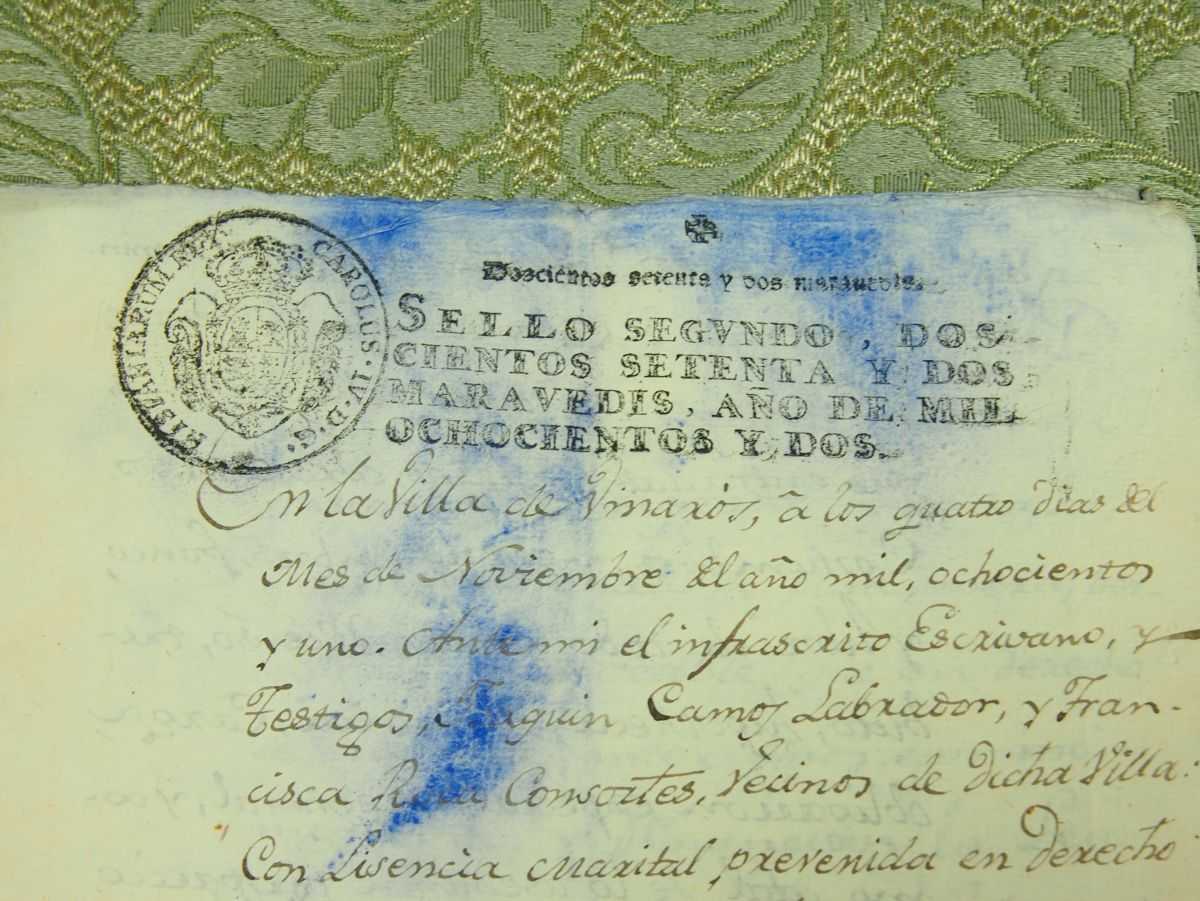 CAROLUS·IV·D·G·
HISPANIARUM REX
Doscientos setenta y dos maravedis.
SELLO SEGVNDO, DOS
CIENTOS SETENTA Y DOS
MARAVEDIS, AÑO DE MIL
OCHOCIENTOS Y DOS.
En la Villa de Vinaròs, â los quatro dias del
Mes de Noviembre del año mil, ochocientos
y uno. Ante mi el infrascrito Escrivano, y
Testigos, Joaquin Camos Labrador, y Fran-
cisca Consortes, Vecinos de dicha Villa:
Con Lisencia Marital prevenida en Derecho